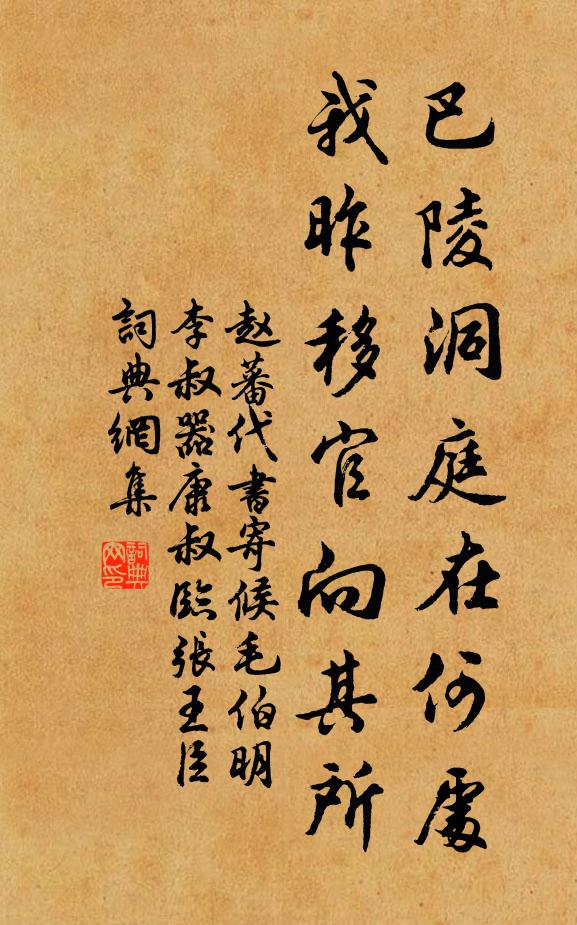 巴陵洞庭在何處
我昨移官向其所
赵蕃代書寄候毛伯明
李叔器康叔臨張王臣
詞典網集
詞典
网印